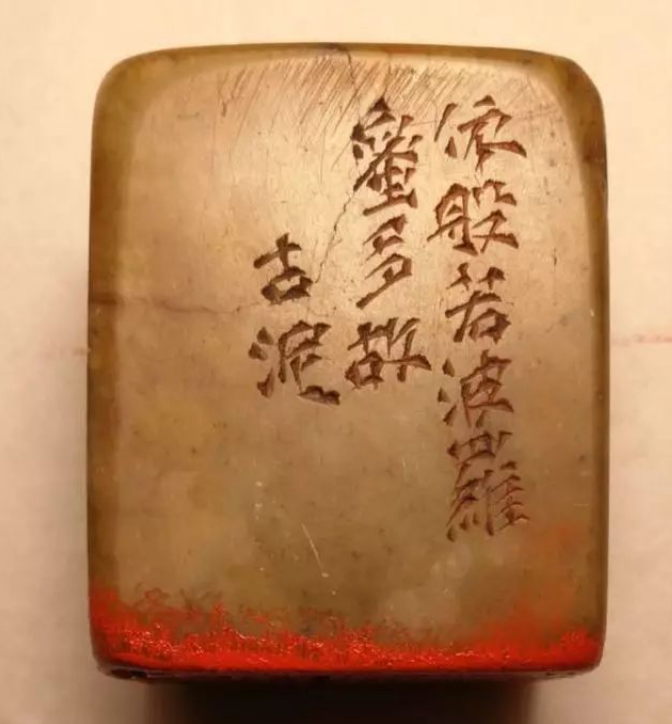 依般若波羅
蜜多故
古泥